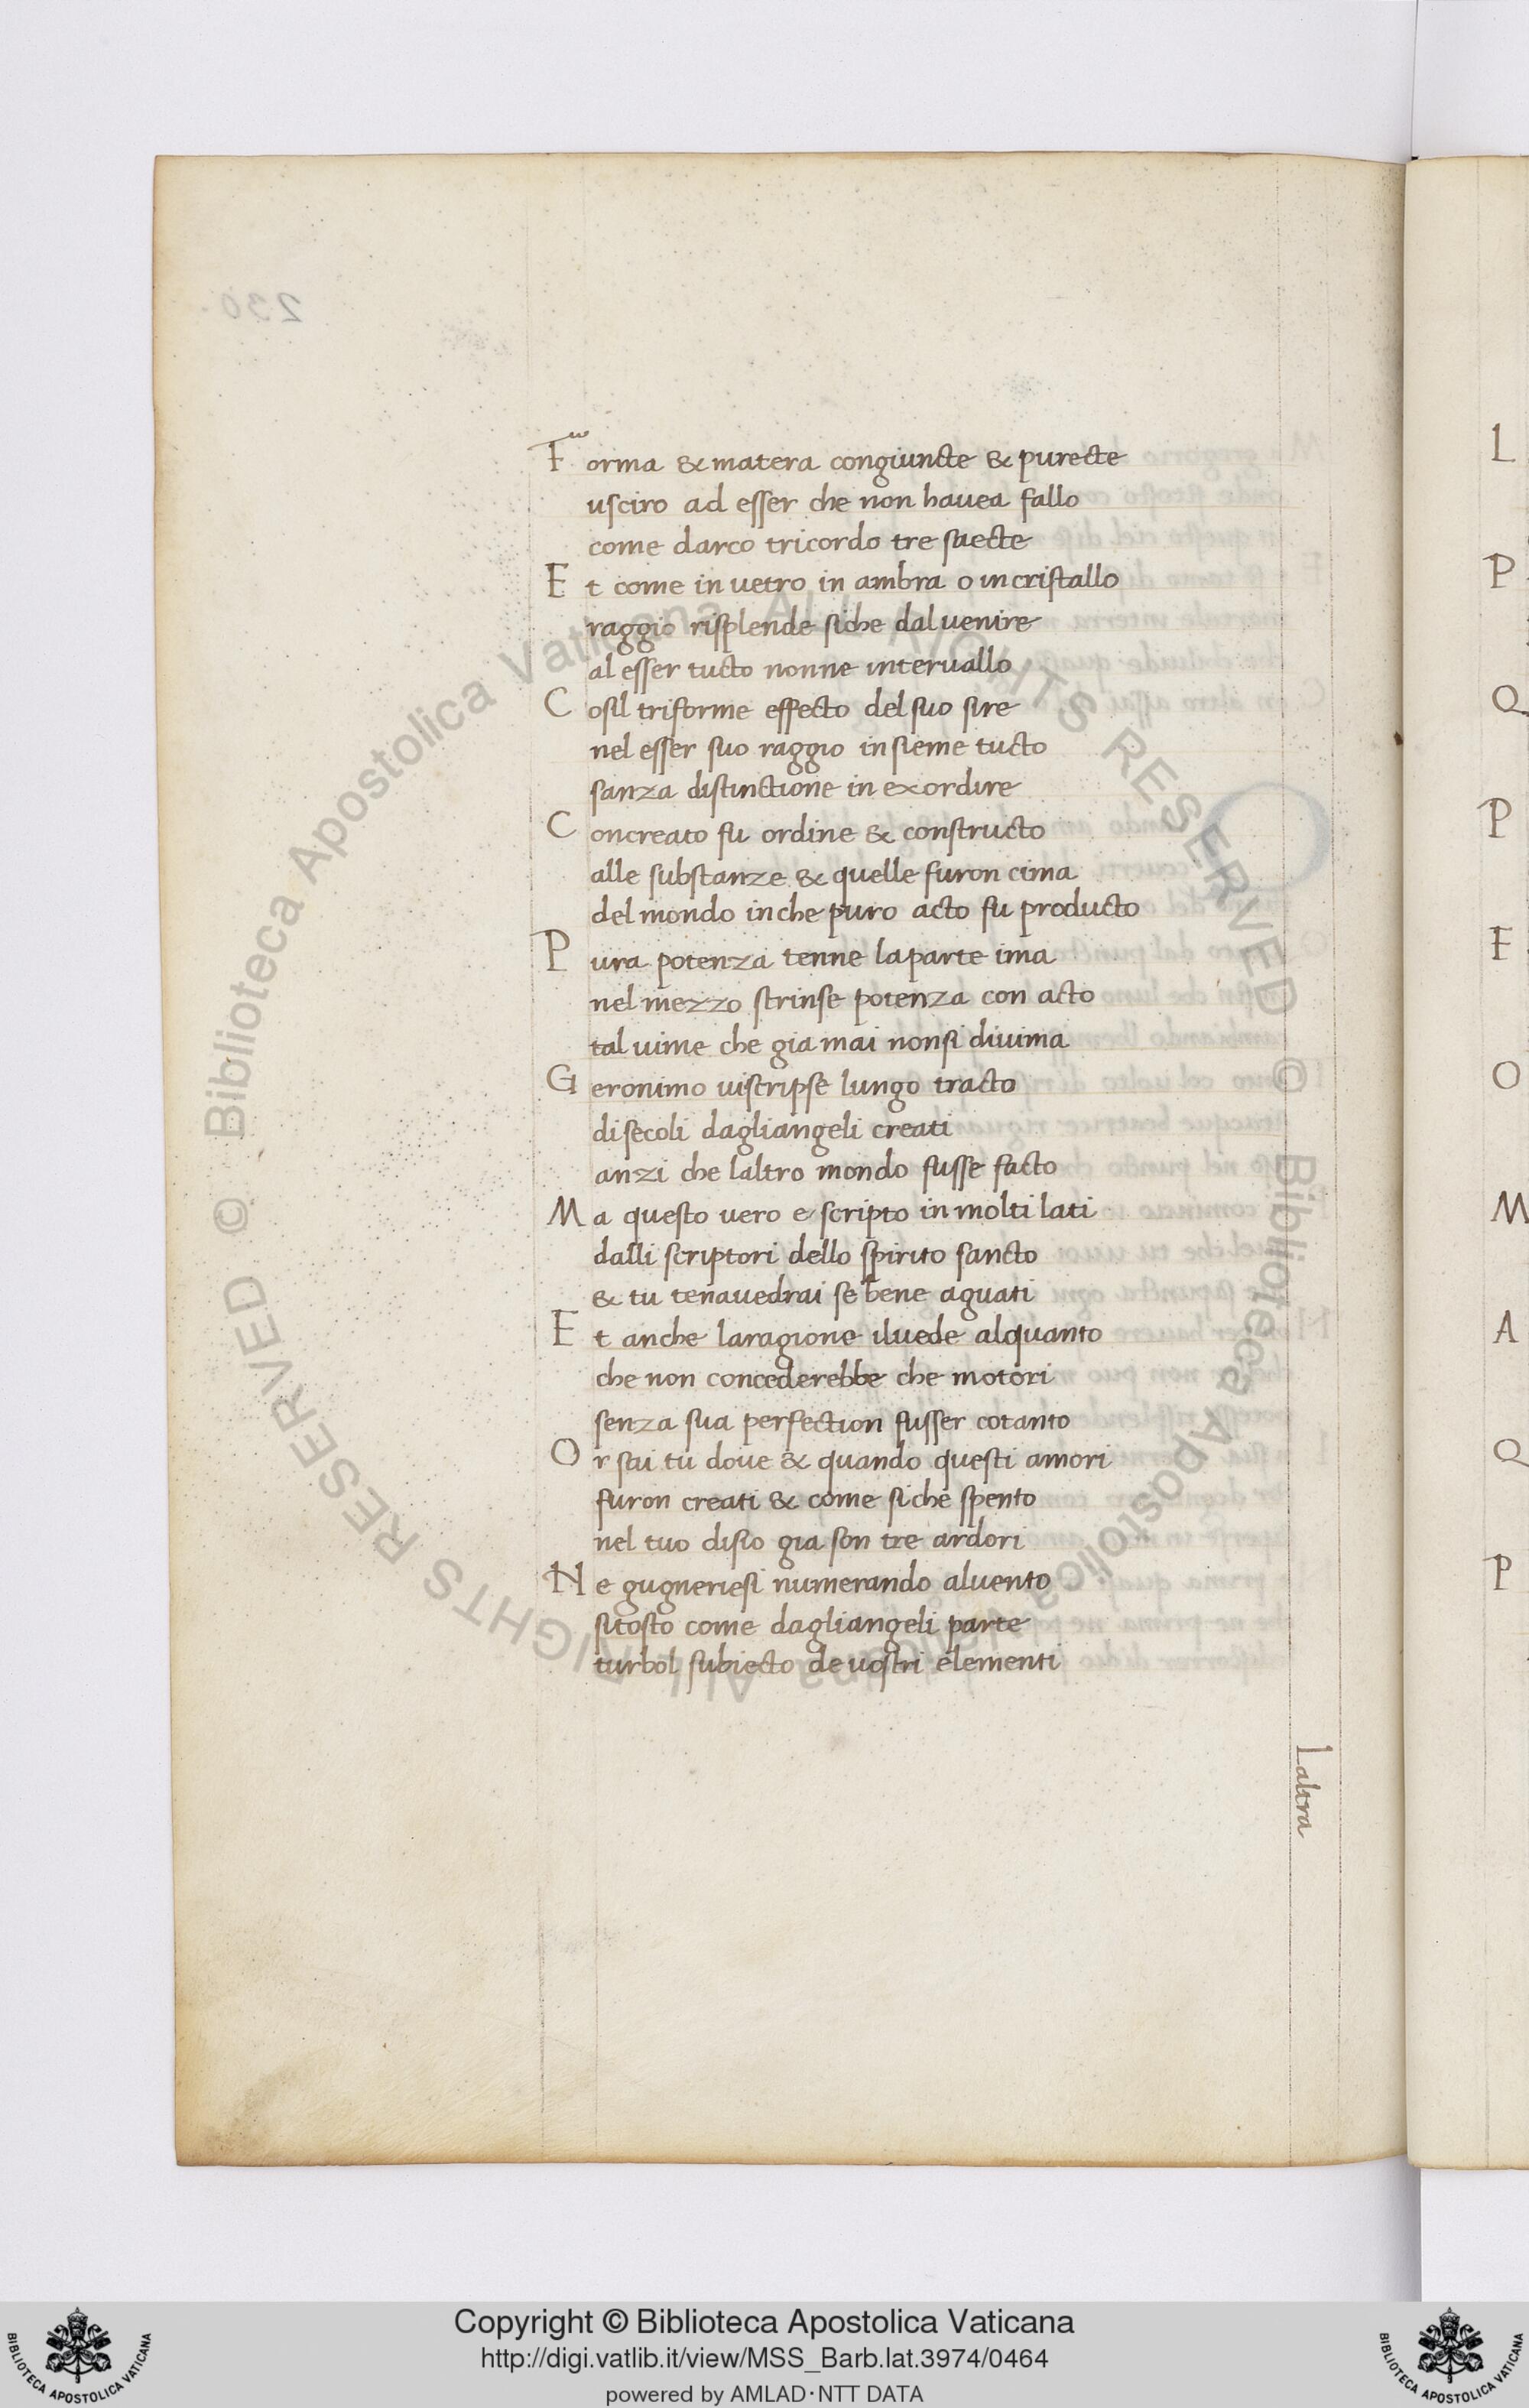 Forma & matera congiuncte & purecte
usciro ad esser che non hauea fallo
come darco tricordo tre saecte
Et come in vetro in ambra o in cristallo
raggio risplende siche dal uenire
al esser tucto nonne interuallo
Cosil triforme effecto del suo sire
nel esser suo raggio insieme tucto
sanza distinctione in exordire
Concreato fu ordine & constructo
alle substanze & quelle furon cima
del mondo in che puro acto fu producto
Pura potenza tenne la parte ima
nel mezzo strinse potenza con acto
tal uime che gia mai non si diuima
Geronimo ui scripse lungo tracto
di secoli dagli angeli creati
anzi che laltro mondo fusse facto
Ma questo vero e scripto in molti lati
dalli scriptori dello spirito sancto
& tu tenauedrai se bene aguati
Et anche la ragione il uede alquanto
che non concederebbe che motori
senza sua perfection fusser cotanto
Or sai tu doue & quando questi amori
furon creati & come si che spento
nel tuo disio gia son tre ardori
Ne gugneriesi numerando al uento
si tosto come dagli angeli parte
turbol subiecto de uostri elementi
Laltra
230
L
P
Q
P
E
O
M
A
Q
P
© Biblioteca Apostolica Vaticana ALL RIGHTS RESERVED © Biblioteca Apostolica Vaticana ALL RIGHTS RESERVED
BIBLIOTECA APOSTOLICA VATICANA
Copyright © Biblioteca Apostolica Vaticana
http://digi.vatlib.it/view/MSS_Barb.lat.3974/0464
powered by AMLAD·NTT DATA
BIBLIOTECA APOSTOLICA VATICANA